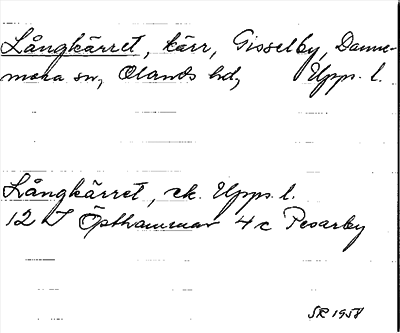 Långkärret, kärr, Gisselby, Danne-
mora sn, Olands hd, Upps. l.
Långkärret, ek. Upps. l.
12 I Östhammar 4 c Pesarby
SR 1958